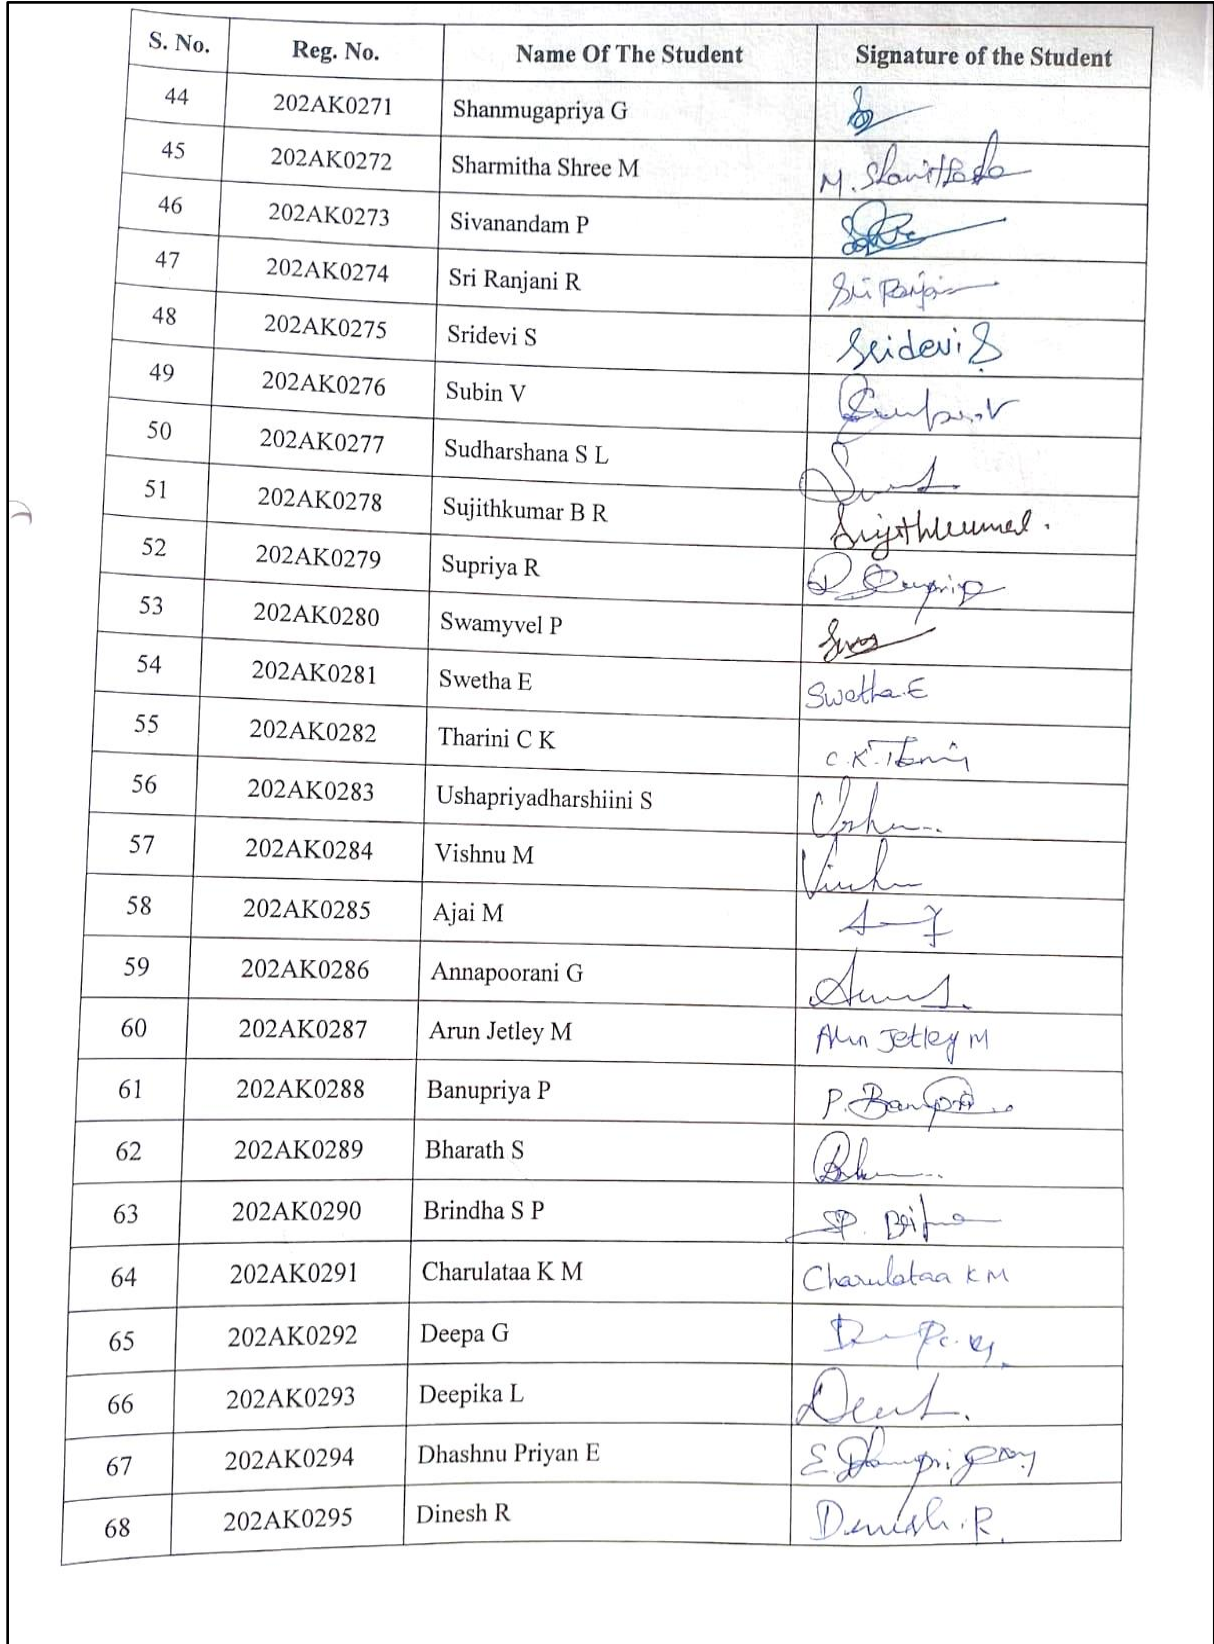 S. No. Reg. No. Name Of The Student Signature of the Student
44 202AK0271 Shanmugapriya G
45 202AK0272 Sharmitha Shree M M.
46 202AK0273 Sivanandam P
47 202AK0274 Sri Ranjani R Sri
48 202AK0275 Sridevi S Sridevi S
49 202AK0276 Subin V
50 202AK0277 Sudharshana S L
51 202AK0278 Sujithkumar B R Sujithkumar.
52 202AK0279 Supriya R R Supriya
53 202AK0280 Swamyvel P
54 202AK0281 Swetha E Swetha.E
55 202AK0282 Tharini C K C.K.
56 202AK0283 Ushapriyadharshiini S
57 202AK0284 Vishnu M
58 202AK0285 Ajai M
59 202AK0286 Annapoorani G
60 202AK0287 Arun Jetley M Arun Jetley M
61 202AK0288 Banupriya P P.
62 202AK0289 Bharath S
63 202AK0290 Brindha S P SP.
64 202AK0291 Charulataa K M Charulataa K M
65 202AK0292 Deepa G
66 202AK0293 Deepika L
67 202AK0294 Dhashnu Priyan E E.
68 202AK0295 Dinesh R Dinesh.R